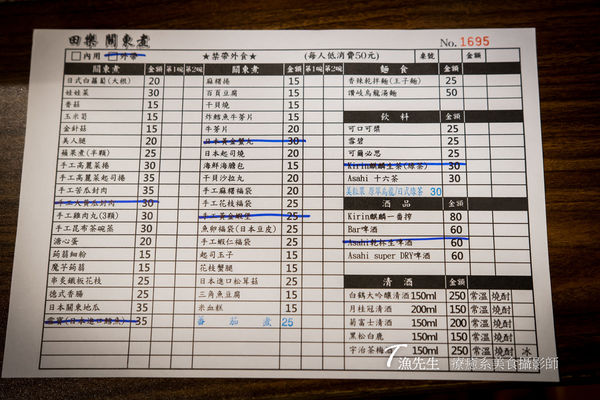 田樂 關東煮
No. 1695
□內用 □外帶 ★禁帶外食★ (每人低消費50元) 桌號 金額
關東煮 金額 第1碗 第2碗
日式白蘿蔔(大根) 20
娃娃菜 30
香菇 15
玉米筍 15
金針菇 15
美人腿 20
蘋果煮(半顆) 25
手工高麗菜捲 35
手工高麗菜起司捲 35
手工苦瓜封肉 35
手工大黃瓜封肉 30
手工雞肉丸(3顆) 30
手工昆布茶碗蒸 30
溏心蛋 20
蒟蒻細粉 15
魔芋蒟蒻 15
串炙鐵板花枝 25
德式香腸 25
日本關東地瓜 35
雪寶(日本進口鱈魚) 35
關東煮 金額 第1碗 第2碗
麻糬捲 15
百頁豆腐 15
干貝燒 15
炸鱈魚牛蒡片 20
牛蒡片 20
日本黃金蟹丸 30
日本起司燒 20
海鮮海膽包 15
干貝沙拉丸 20
手工麻糬福袋 20
手工花枝福袋 25
手工黃金蝦堡 25
魚卵福袋(日本豆皮) 25
手工蝦仁福袋 25
起司玉子 15
花枝蟹腿 15
日本進口松茸菇 25
三角魚豆腐 15
米血糕 15
番茄煮 25
麵食 金額
香辣乾拌麵(王子麵) 25
讚岐烏龍湯麵 50
飲料 金額
可口可樂 25
雪碧 25
可爾必思 25
Kirin麒麟生茶(綠茶) 30
Asahi 十六茶 30
美粒果 原萃烏龍/日式綠茶 30
酒品 金額
Kirin麒麟一番搾 80
Bar啤酒 60
Asahi乾杯生啤酒 60
Asahi super DRY啤酒 60
清酒 金額
白鶴大吟釀清酒150ml 250 常溫 燒酎
月桂冠清酒 200ml 150 常溫 燒酎
菊富士清酒 150ml 200 常溫 燒酎
黑松白鹿 150ml 150 常溫 燒酎
宇治茶梅 150ml 250 常溫 燒酎 冰
漁先生 療癒系美食攝影師